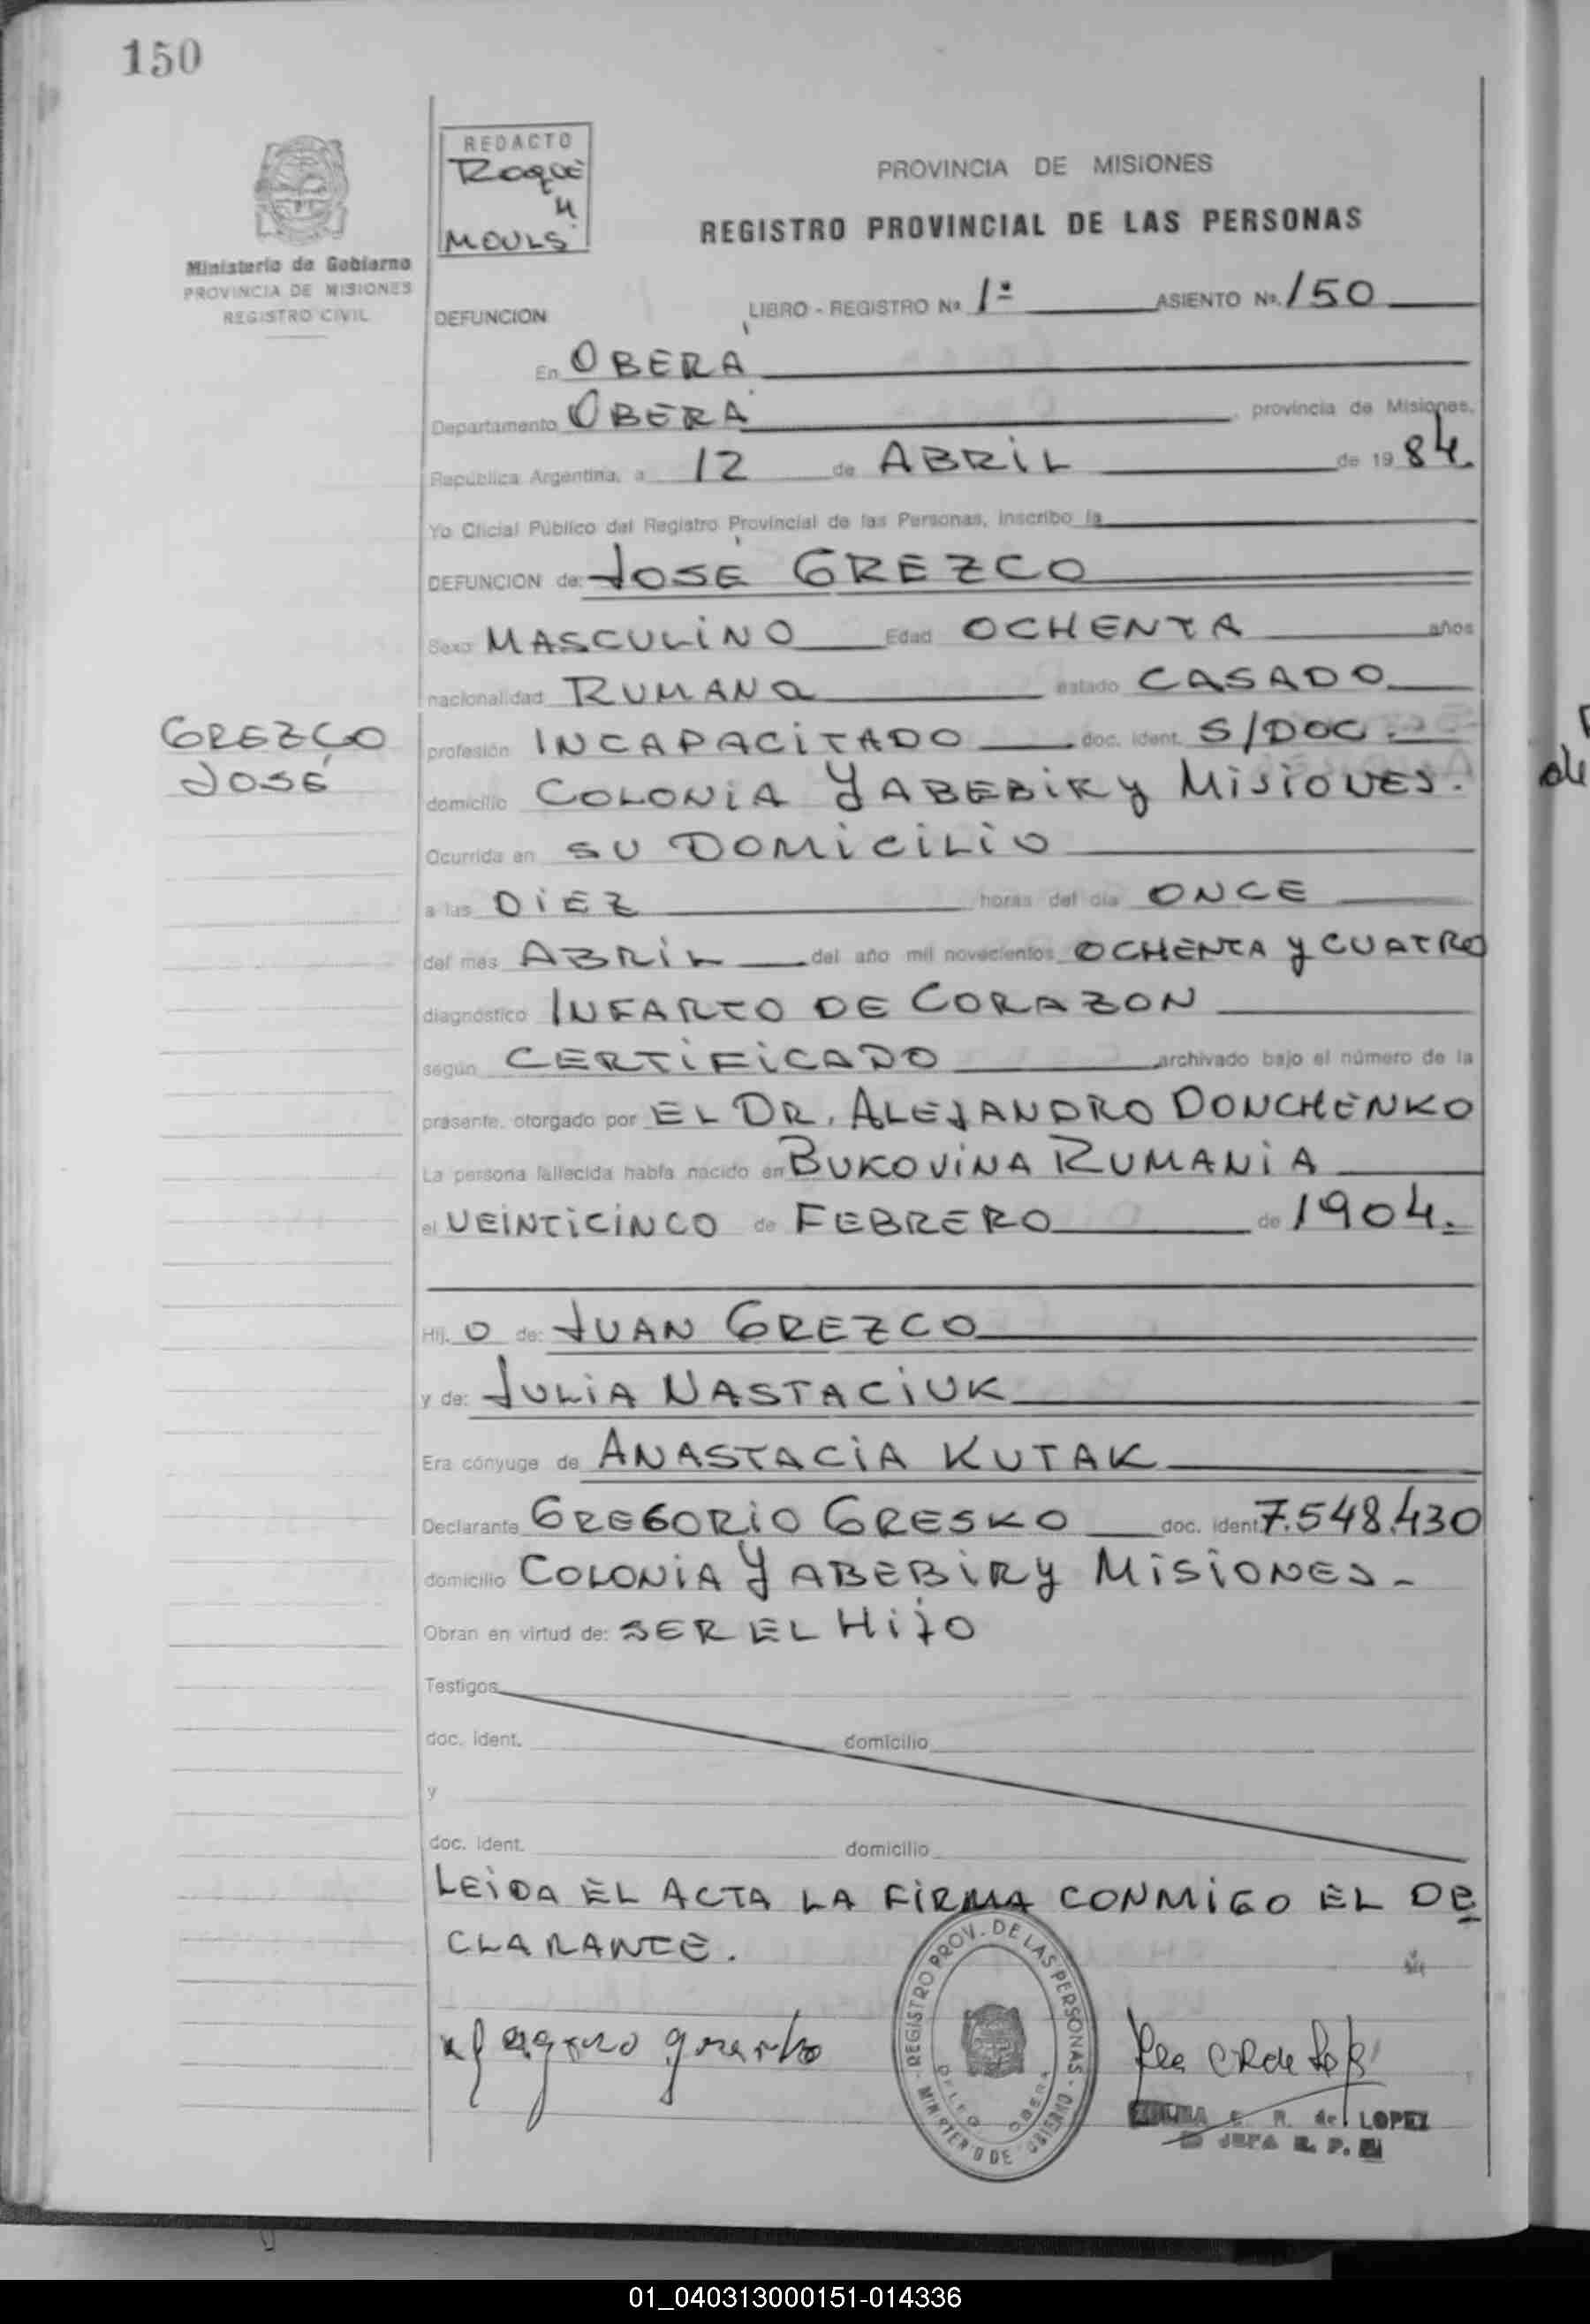 150
REDACTO
Roque
MOULS
Ministerio de Gobierno
PROVINCIA DE MISIONES
REGISTRO CIVIL
PROVINCIA DE MISIONES
REGISTRO PROVINCIAL DE LAS PERSONAS
DEFUNCION LIBRO - REGISTRO Nº 1º ASIENTO Nº. 150
En OBERÁ
Departamento OBERÁ, provincia de Misiones,
República Argentina, a 12 de ABRIL de 1984.
Yo Oficial Público del Registro Provincial de las Personas, inscribo la
DEFUNCION de: JOSÉ GREZCO
Sexo MASCULINO Edad OCHENTA años
nacionalidad RUMANa estado CASADO
GREZCO
JOSÉ
profesión INCAPACITADO doc. ident. S/DOC.
domicilio COLONIA YABEBIRY MISIONES.
Ocurrida en SU DOMICILIO
a las DIEZ horas del día ONCE
del mes ABRIL del año mil novecientos OCHENTA y CUATRO
diagnóstico INFARTO DE CORAZON
según CERTIFICADO archivado bajo el número de la
presente, otorgado por EL DR. ALEJANDRO DONCHENKO
La persona fallecida había nacido en BUKOVINA RUMANIA
el VEINTICINCO de FEBRERO de 1904.
Hij. O de: JUAN GREZCO
y de: JULIA NASTACIUK
Era cónyuge de ANASTACIA KUTAK
Declarante GREGORIO GRESKO doc. ident. 7.548.430
domicilio COLONIA YABEBIRY MISIONES-
Obran en virtud de: SER EL HIJO
Testigos
doc. ident. domicilio
y
doc. ident. domicilio
LEIDA EL ACTA LA FIRMA CONMIGO EL DE
CLARANTE.
REGISTRO PROV. DE LAS PERSONAS - MINISTERIO DE GOBIERNO -
DELEG. OBERA
R. de LOPEZ
JEFA R. P.
01_040313000151-014336